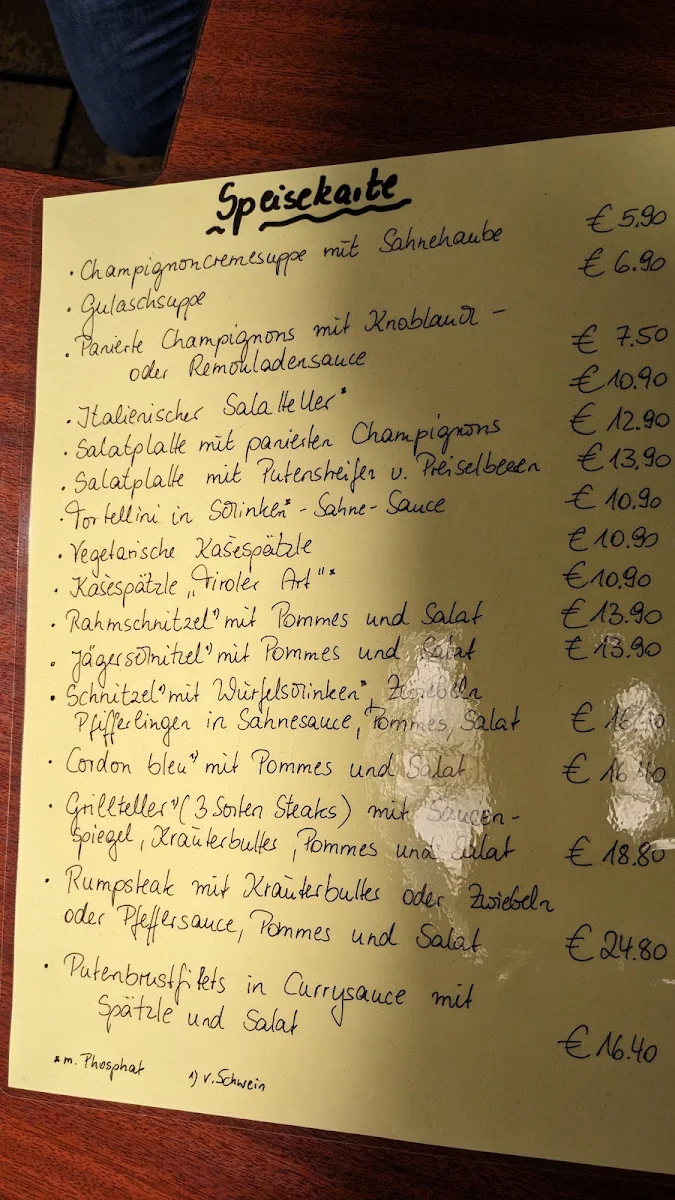 Speisekarte
• Champignoncremesuppe mit Sahnehaube € 5.90
• Gulaschsuppe € 6.90
• Panierte Champignons mit Knoblauch -
oder Remouladensauce € 7.50
• Italienischer Salatteller* € 10.90
• Salatplatte mit panierten Champignons € 12.90
• Salatplatte mit Putenstreifen u. Preiselbeeren € 13,90
• Tortellini in Schinken* - Sahne - Sauce € 10.90
• Vegetarische Käsespätzle € 10.90
• Käsespätzle „Tiroler Art"* € 10.90
• Rahmschnitzel¹⁾ mit Pommes und Salat € 13.90
• Jägerschnitzel¹⁾ mit Pommes und Salat € 13.90
• Schnitzel¹⁾ mit Würfelschinken*, Zwiebeln
Pfifferlingen in Sahnesauce, Pommes, Salat € 16.40
• Cordon bleu¹⁾ mit Pommes und Salat € 16.40
• Grillteller¹⁾ (3 Sorten Steaks) mit Saucen -
spiegel, Kräuterbutter, Pommes und Salat € 18.80
• Rumpsteak mit Kräuterbutter oder Zwiebeln
oder Pfeffersauce, Pommes und Salat € 24.80
• Putenbrustfilets in Currysauce mit
Spätzle und Salat € 16.40
* m. Phosphat 1) v. Schwein